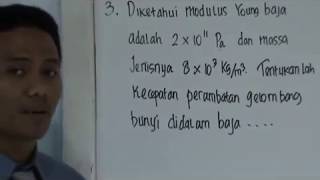 3. Diketahui modulus Young baja
adalah 2 x 10¹¹ Pa dan massa
Jenisnya 8 x 10³ Kg/m³. Tentukanlah
Kecepatan perambatan gelombang
bunyi didalam baja ....